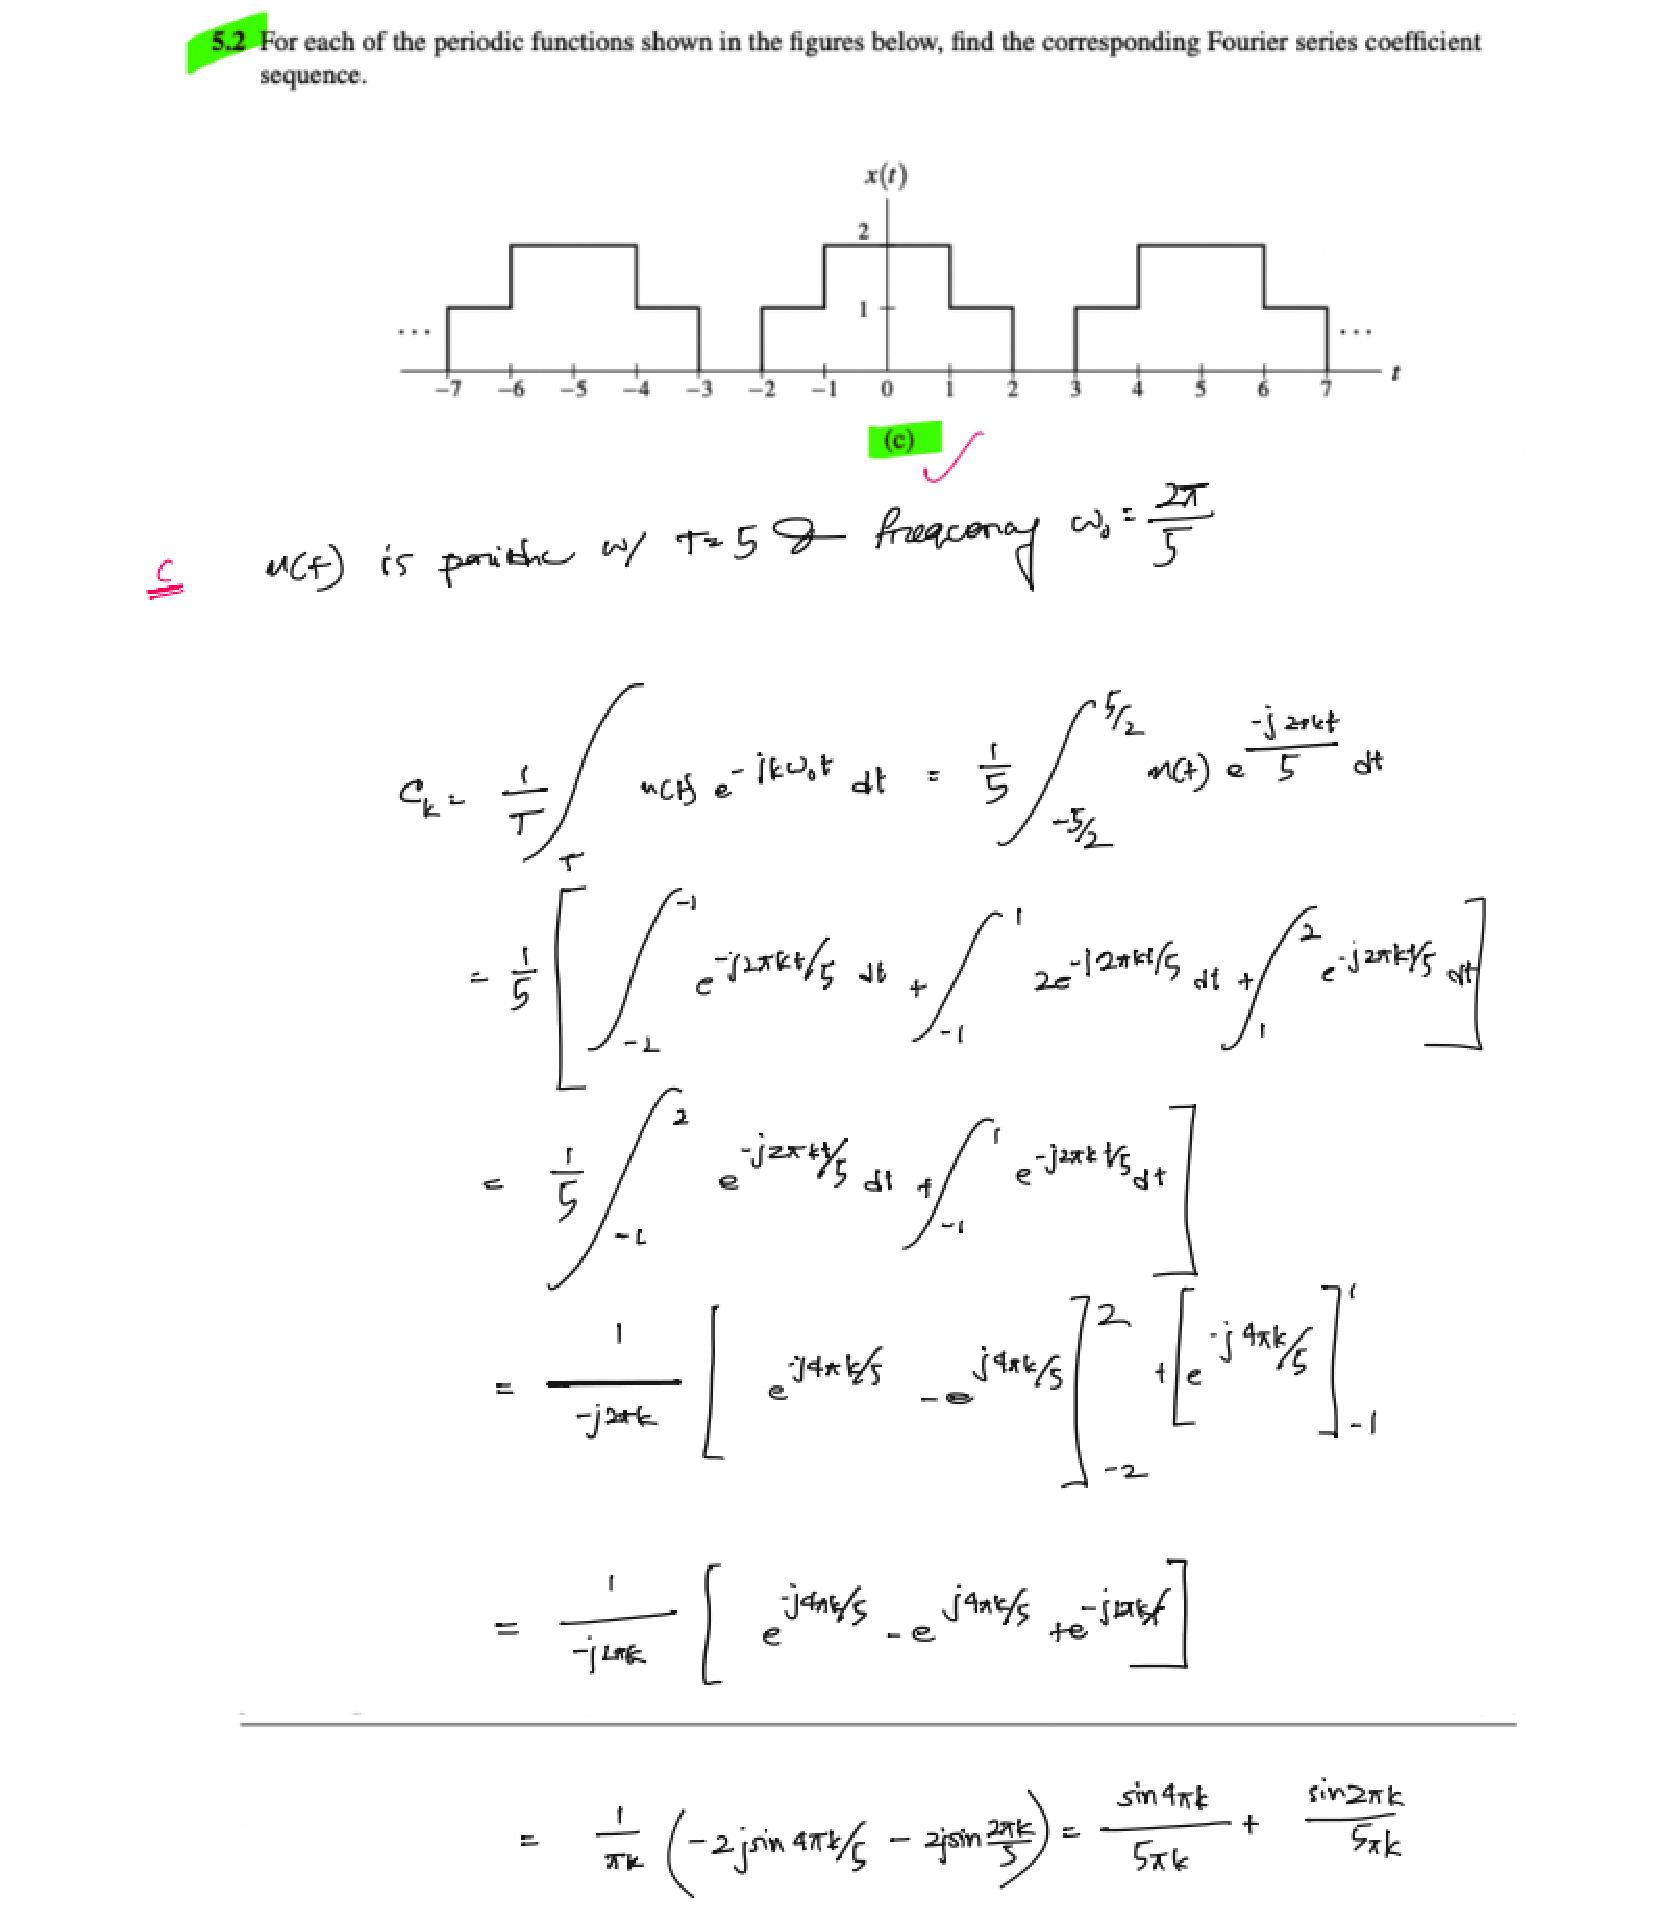 5.2 For each of the periodic functions shown in the figures below, find the corresponding Fourier series coefficient
sequence.
x(t)
2
1
... ...
-7 -6 -5 -4 -3 -2 -1 0 1 2 3 4 5 6 7 t
(c) ✓
c x(t) is periodic w/ T=5 & frequency ω₀ = 2π/5
C_k = 1/T ∫_T x(t) e^{-jkω₀t} dt = 1/5 ∫_{-5/2}^{5/2} x(t) e^{-j2πkt/5} dt
= 1/5 [ ∫_{-2}^{-1} e^{-j2πkt/5} dt + ∫_{-1}^{1} 2e^{-j2πkt/5} dt + ∫_{1}^{2} e^{-j2πkt/5} dt ]
= 1/5 ∫_{-2}^{2} e^{-j2πkt/5} dt + ∫_{-1}^{1} e^{-j2πkt/5} dt ]
= 1/(-j2πk) [ e^{-j4πk/5} - e^{j4πk/5} ]_{-2}^{2} + [ e^{-j4πk/5} ]_{-1}^{1}
= 1/(-j2πk) [ e^{-j4πk/5} - e^{j4πk/5} + ]
= 1/πk ( -2j sin 4πk/5 - 2j sin 2πk/5 ) = sin4πk/5πk + sin2πk/5πk